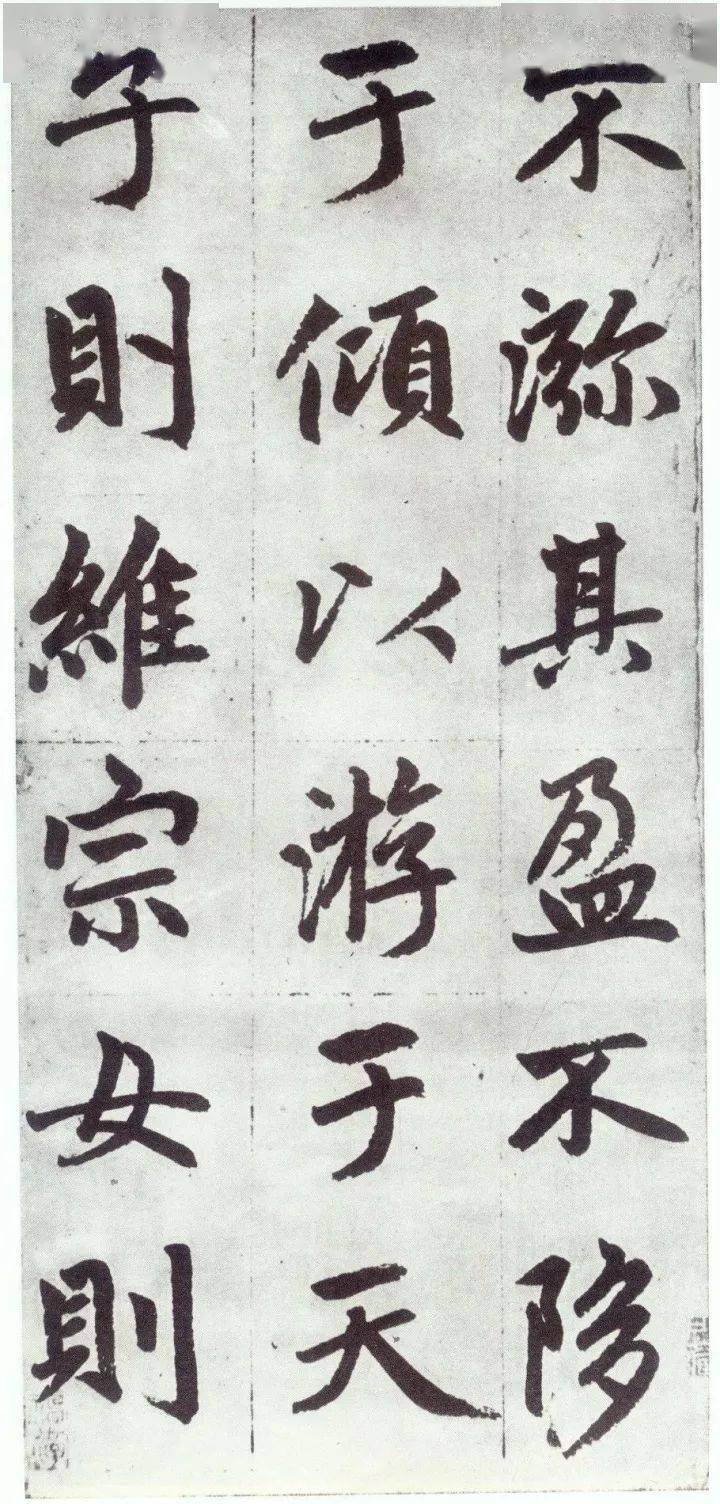 不濔其盈不陊
于傾以游于天
子則維宗女則